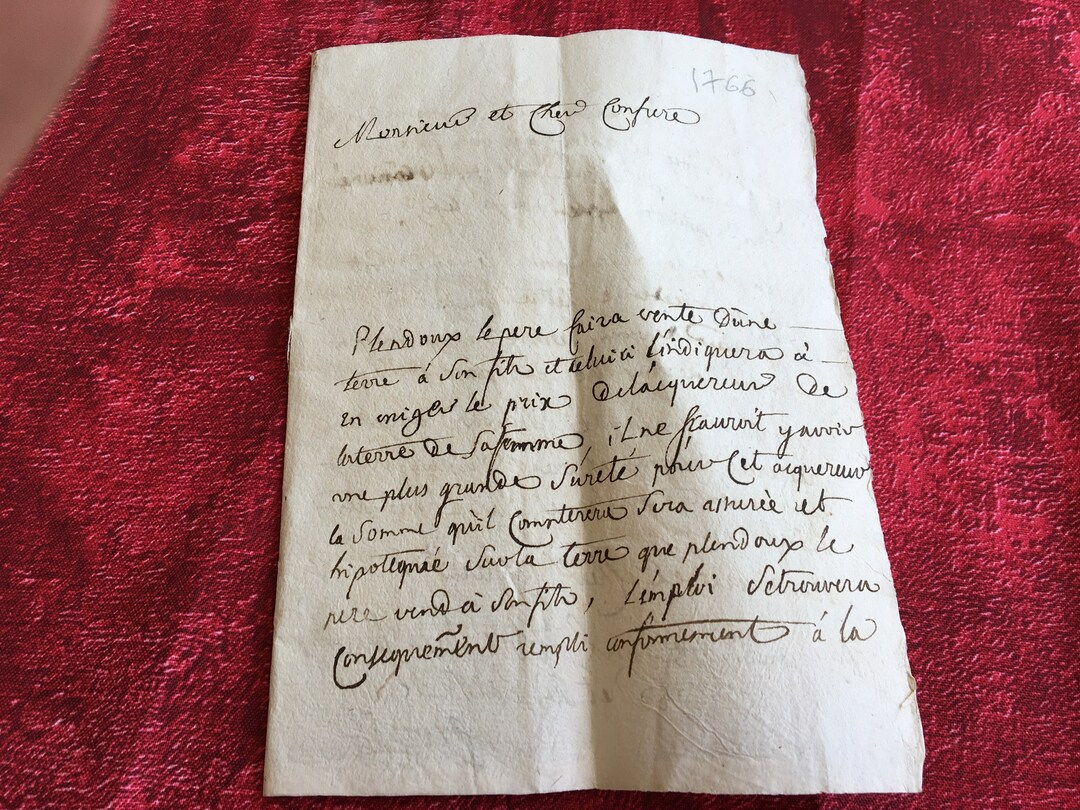 1766
Monsieur et Cher Confrere
Plendoux le pere faira vente Dune
terre à son fils et celui ci l'indiquera à
en exiger le prix de l'acquereur De
la terre De sa femme, il ne sçauroit y avoir
une plus grande sûreté pour Cet acquereur
la somme qu'il Comterera sera assurée et
hipotequée sur la terre que plendoux le
pere vend à son fils, L'emploi se trouvera
Consequemment rempli conformement á la